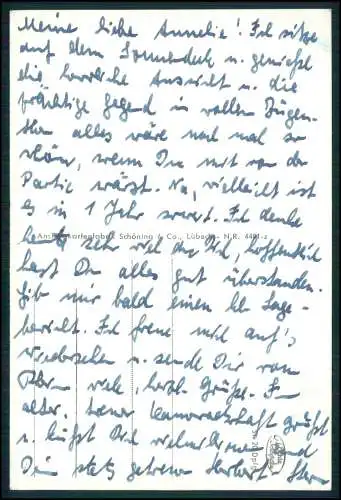 Meine liebe Annelie! Ich sitze
auf dem Sonnendeck u. genieße
die herrliche Aussicht u. die
prächtige Gegend in vollen Zügen.
alles wäre noch mal so
schön, wenn Du mit von der
Partie wärst. Na, vielleicht ist
es in 1 Jahr soweit. Ich denke
heut sehr viel an Dich, hoffentlich
Ansichtskartenfabrik Schöning & Co., Lübeck - N.R. 4491-z
hast Du alles gut überstanden.
Gib mir bald einen kl. Lage-
bericht. Ich freue mich auf's
Wiedersehen u. sende Dir vom
Rhein viele, herzl. Grüße. In
alter, treuer Kameradschaft grüßt
u. küßt Dich vielmals
Dein stets getreuer Herbert